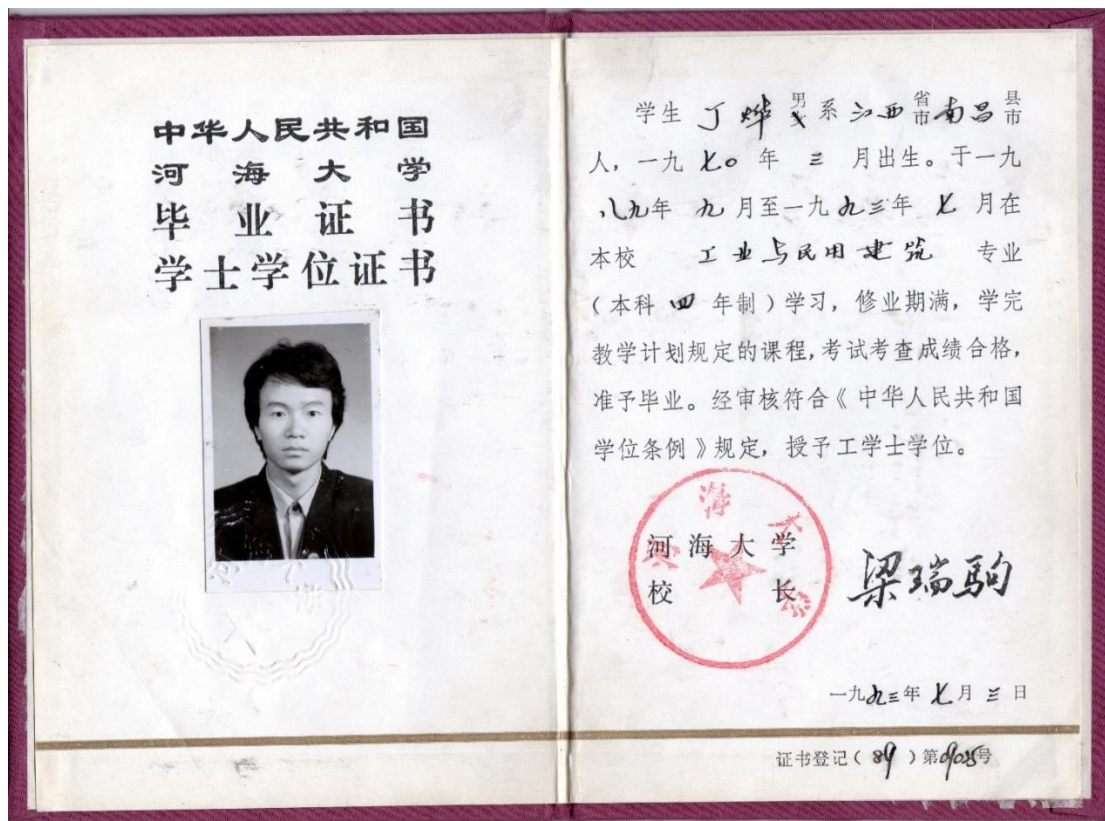 中华人民共和国
河海大学
毕业证书
学士学位证书
学生 丁烨 男 系 江西 省市 南昌 县市
人，一九七〇年 三 月出生。于一九
八九年 九 月至一九九三年 七 月在
本校 工业与民用建筑 专业
（本科 四 年制）学习，修业期满，学完
教学计划规定的课程，考试考查成绩合格，
准予毕业。经审核符合《中华人民共和国
学位条例》规定，授予工学士学位。
河海大学
河海大学
校长
梁瑞驹
一九九三年 七 月 三 日
证书登记（89）第 号